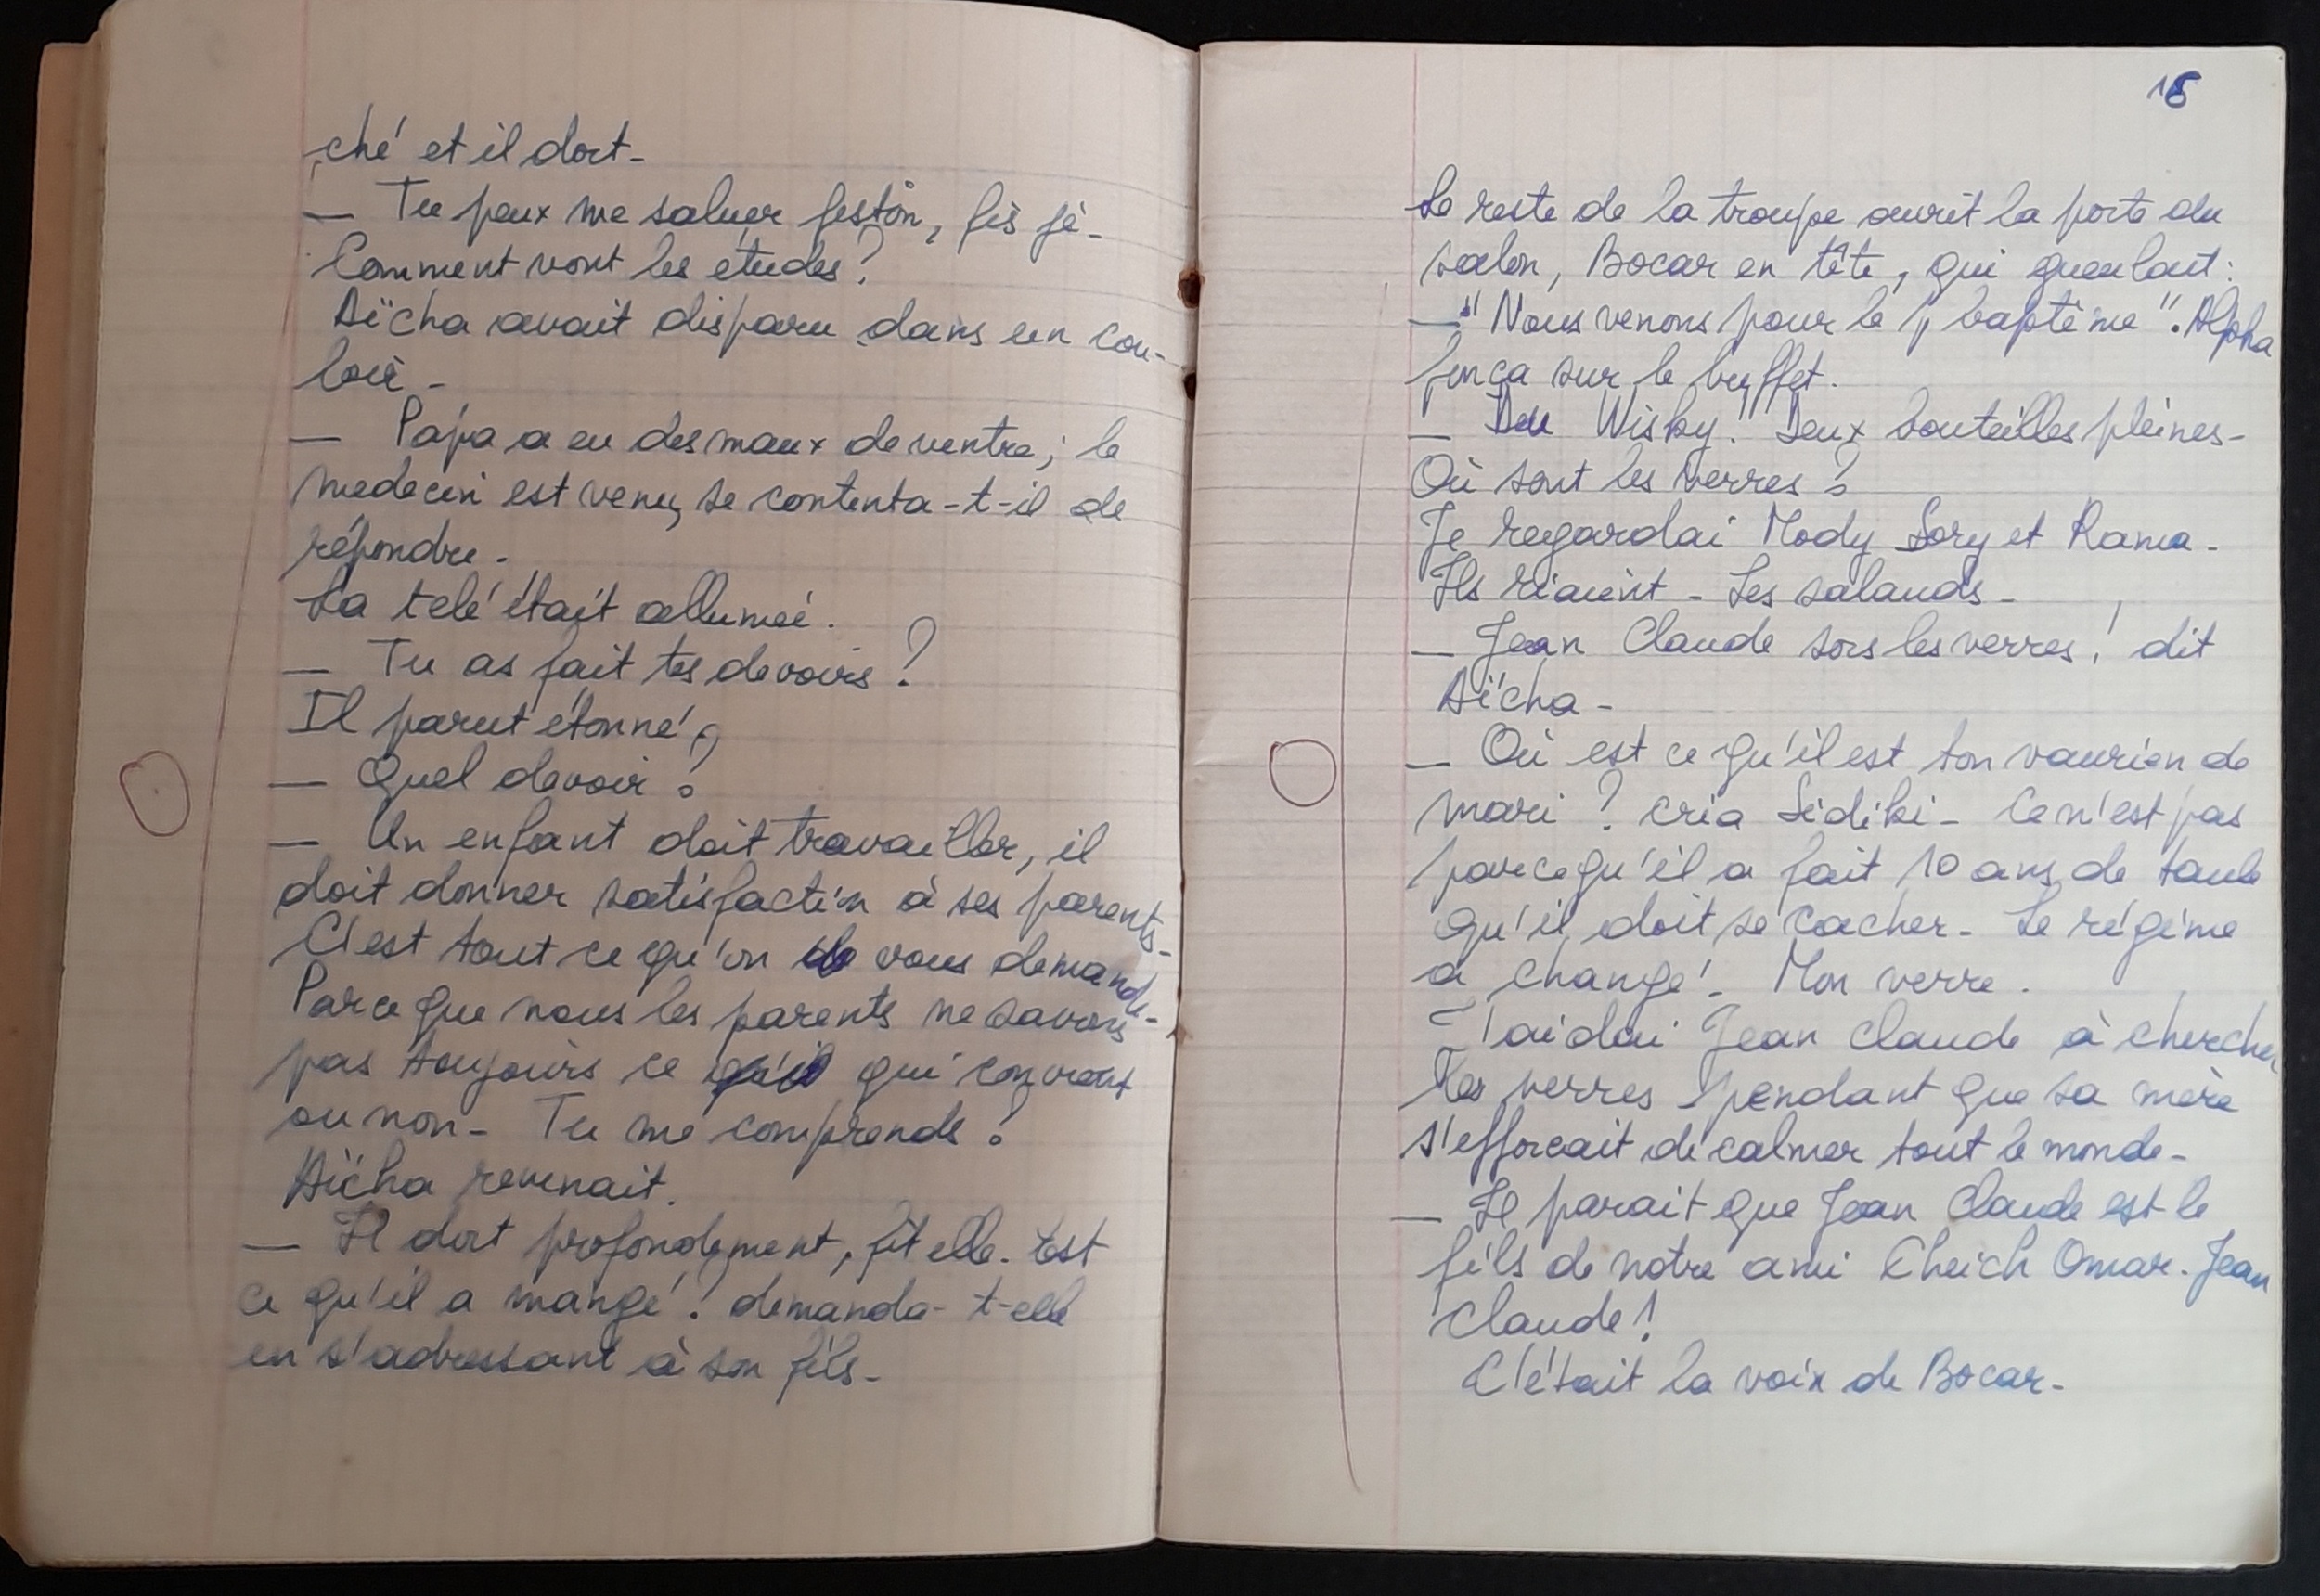 ché et il dort -
— Tu peux me saluer fiston, fis je -
Comment vont les études ?
Aïcha avait disparu dans un cou-
loir -
— Papa a eu des maux de ventre ; le
medecin est venu, se contenta-t-il de
répondre -
La télé était allumée .
— Tu as fait tes devoirs ?
Il parut étonné,
— Quel devoir ?
— Un enfant doit travailler, il
doit donner satisfaction à ses parents -
C'est tout ce qu'on vous demande -
Parce que nous les parents ne savons
pas toujours ce qui convient
ou non - Tu me comprends ?
Aïcha revenait .
— Il dort profondément, fit elle - Est
ce qu'il a mangé ? demanda - t-elle
en s'adressant à son fils -
18
Le reste de la troupe ouvrit la porte du
salon, Bocar en tête, qui gueulait :
— " Nous venons pour le baptême ". Alpha
fonça sur le buffet .
— Du Wisky ! Deux bouteilles pleines -
Où sont les verres ?
Je regardai Mody Sory et Rama -
Ils riaient - Les salauds -
— Jean Claude sors les verres ! dit
Aïcha -
— Où est ce qu'il est ton vaurien de
mari ? cria Sidiki - Ce n'est pas
parce qu'il a fait 10 ans de taule
qu'il doit se cacher - Le régime
a changé - Mon verre .
J'aidai Jean Claude à chercher
les verres pendant que sa mère
s'efforcait de calmer tout le monde -
— Il parait que Jean Claude est le
fils de notre ami Cheich Omar . Jean
Claude !
C'était la voix de Bocar -